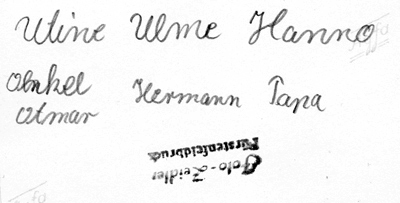 Uline Ulme Hanno
Onkel Hermann Papa
Otmar
Foto-Zeidler
Fürstenfeldbruck